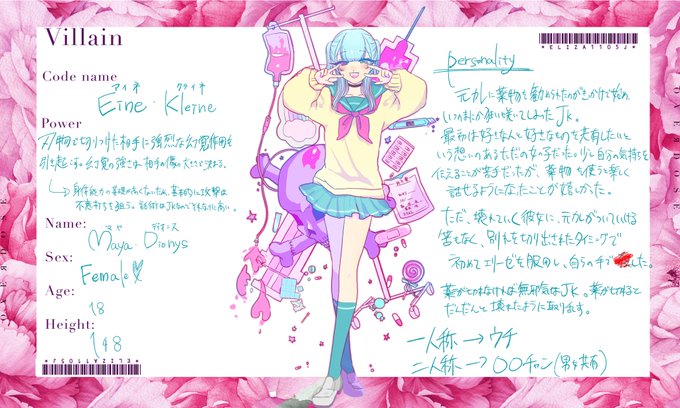 Villain
Code name
アイネ クライネ
Eine・Kleine
Power
刃物で切りつけた相手に強烈な幻覚作用を
引き起こす。幻覚の強さは相手の傷の大きさで決まる。
身体能力の
不意打ちを狙う。
Name:
マヤ ディオニス
Maya・Dionys
Sex:
Female♡
Age:
18
Height:
148
*ELIZA1105J*
*ELIZA1105J*
personality
元カレに薬物を勧められたのがきっかけで始め、
いつのまにか
最初は好きな人と好きなものを共有したいと
いう想いのあるただの女の子だった。
伝えることが苦手だったが、薬物を使うと楽しく
話せるようになったことが嬉しかった。
ただ、壊れていく彼女に、元カレがついていける
筈もなく、別れを切り出されたタイミングで
初めてエリーゼを服用し、自らの手で した。
薬が なければ無邪気なJK。薬が切れると
だんだんと壊れたように取り乱す。
一人称→ウチ
二人称→〇〇チャン(男女共有)
OVERDOSE